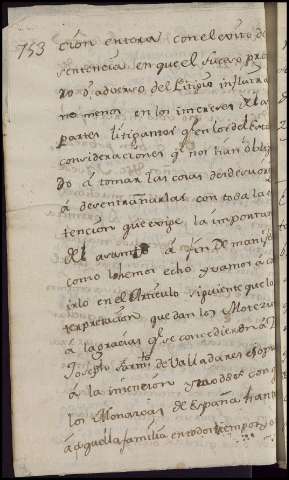 753 cion entera con el exito de
sentencia en que el suceso pro
ro ó adverso del Litigio influirá
no menos en los intereses de las
partes litigantes qe en los del Esta
consideraciones qe nos han oblig
do á tomar las cosas desde su or
á desentrañarlas con toda la a
tencion que exige la importan
del asunto á fin de manif
como lo hemos echo, y vamos á
irlo en el Articulo siguiente que lo
terpretacion que dan los
á la gracias qe se concedieron a D.
Joseph Sarmto de Valladares
á la intencion y modo con q
los Monarcas de España
á aquella familia en todos tiempos y